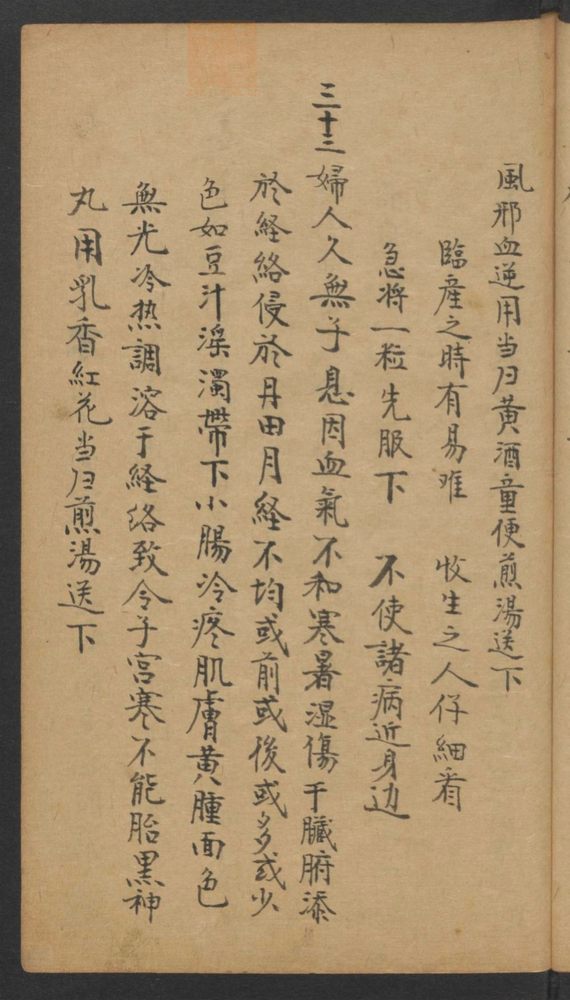 風邪血逆用当归黄酒童便煎湯送下
臨産之時有易难 收生之人仔細看
急将一粒先服下 不使諸病近身边
三十三 婦人久無子息因血氣不和寒暑湿傷于臟腑添
於経絡侵於丹田月経不均或前或後或多或少
色如豆汁滛濁帶下小腸冷疼肌膚黄腫面色
無光冷热調溶于経络致令子宫寒不能胎黒神
丸用乳香紅花当归煎湯送下